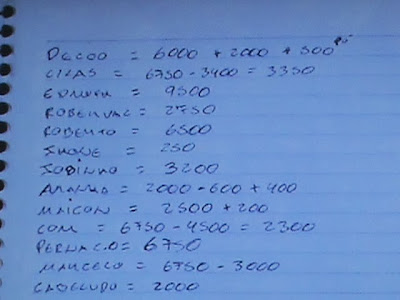 DECOO = 6000 + 2000 + 500
CICAS = 6750 - 3400 = 3350
EDMUNDA = 9500
ROBERVAC = 2750
ROBERTO = 6500
= 250
JOBINHO = 3200
= 2000 - 600 + 400
MAICON = 2500 + 200
COM = 6750 - 4500 = 2300
PERNACO = 6750
MARCELO = 6750 - 3000
CABELUDO = 2000